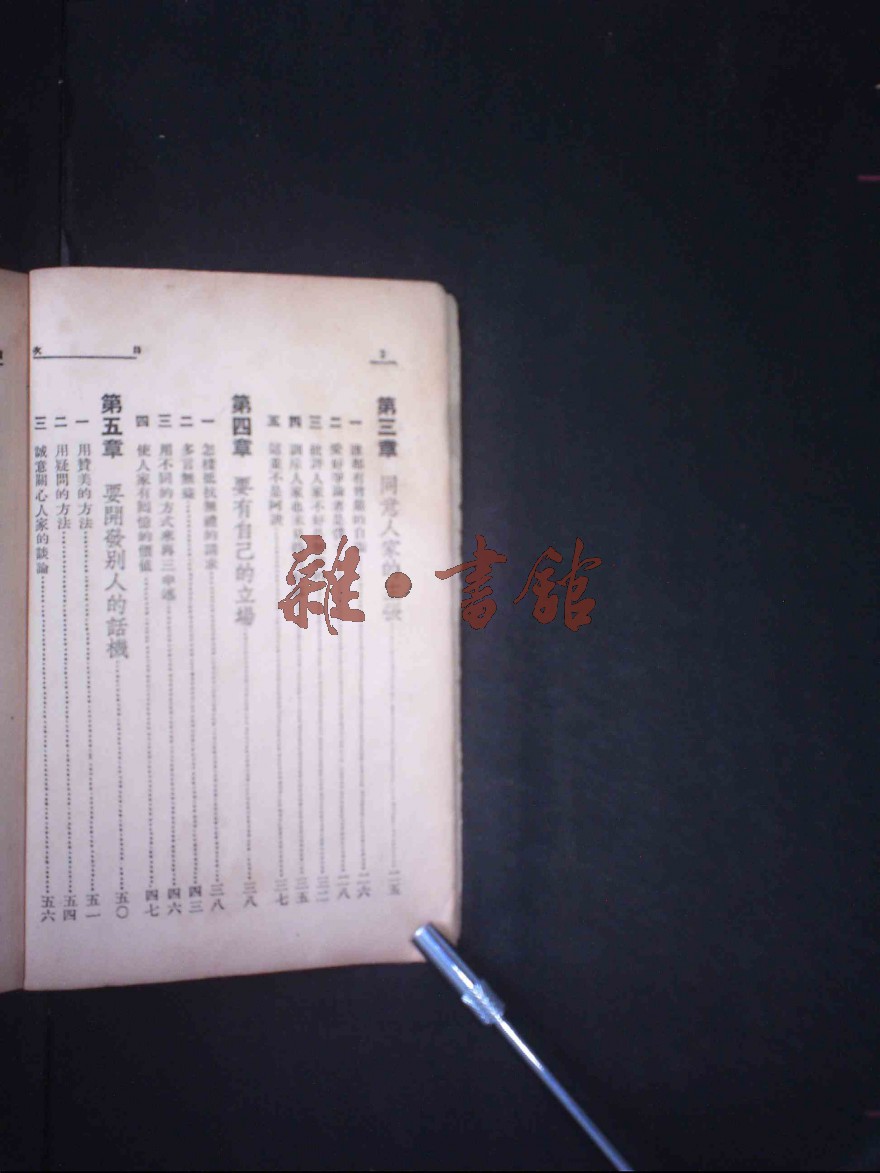 目次
2
第三章 同意人家的主張……二五
一 誰都有尊嚴的自……二六
二 愛好爭論者是……二八
三 批評人家不好……三二
四 訓斥人家也……三五
五 認業不是阿諛……三七
第四章 要有自己的立場……三八
一 怎樣抵抗無禮的請求……三八
二 多言無益……四三
三 用不同的方式來再三申述……四六
四 使人家有回憶的價值……四七
第五章 要開發別人的話機……五〇
一 用贊美的方法……五一
二 用疑問的方法……五四
三 誠意關心人家的談論……五六
雜·書館